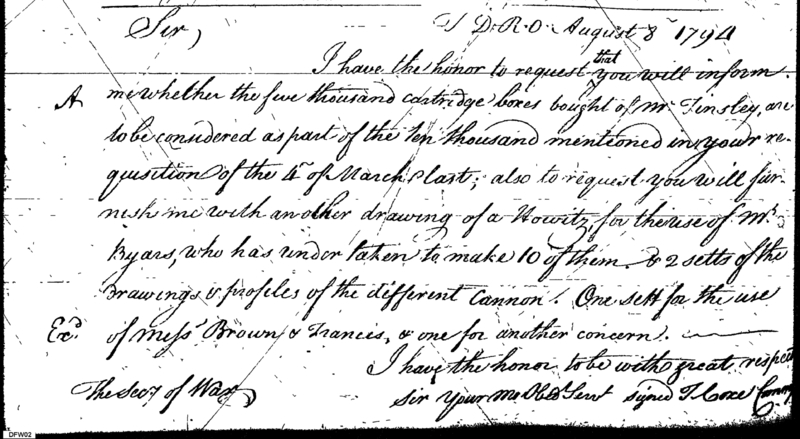 T D. R. O. August 8 1794
Sir,
I have the honor to request that you will inform
A me whether the five thousand cartridge boxes bought of Mr. Tinsley, are
to be considered as part of the ten thousand mentioned in your re-
quisition of the 4th of March last; also to request you will fur-
nish me with another drawing of a Howitz, for the use of Mr.
Byars, who has under taken to make 10 of them. & 2 setts of the
drawings & profiles of the different Cannon. One sett for the use
Exd. of Messrs Brown & Francis, & one for another concern.
I have the honor to be with great respect
The Secy of War Sir your Mo Obdt Servt signed T Coxe
DFW02